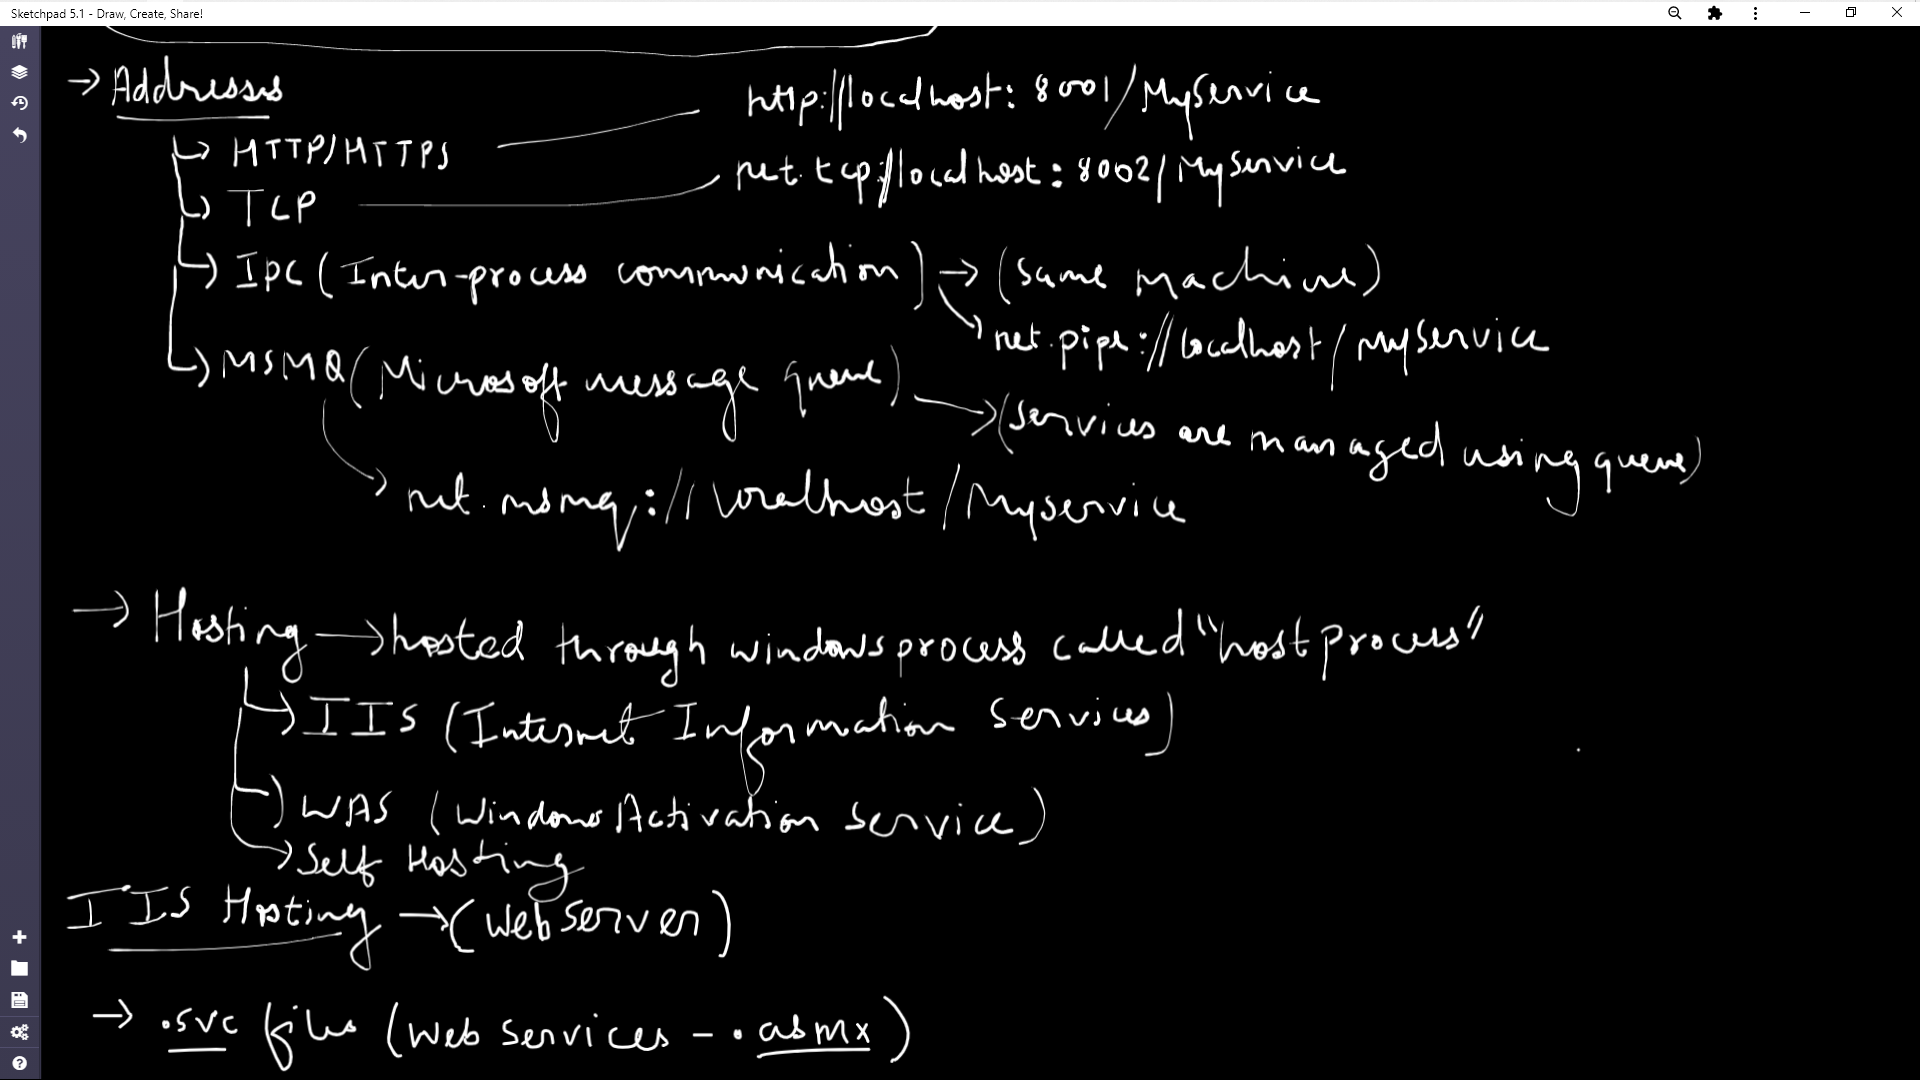 Sketchpad 5.1 - Draw, Create, Share!
→ Addresses
http://localhost: 8001/MyService
→ HTTP/HTTPS
net.tcp://localhost: 8002/MyService
→ TCP
→ IPC (Inter-process communication) → (same machine)
net.pipe://localhost/MyService
→ MSMQ (Microsoft message queue)
→ (services are managed using queue)
net.msmq://localhost/Myservice
→ Hosting → hosted through windows process called "host process"
→ IIS (Internet Information Services)
→ WAS (Windows Activation Service)
→ Self Hosting
IIS Hosting → (Web Server)
→ .svc files (Web Services - .asmx)